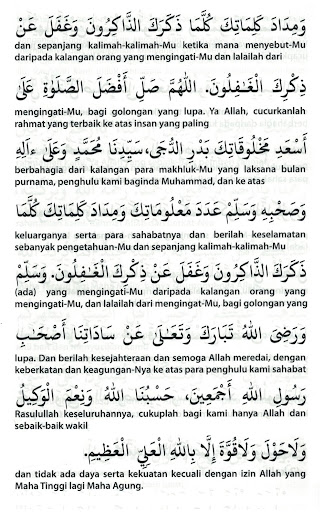 وَمِدَادَ كَلِمَاتِكَ كُلَّمَا ذَكَرَكَ الذَّاكِرُونَ وَغَفَلَ عَنْ
dan sepanjang kalimah-kalimah-Mu ketika mana menyebut-Mu
daripada kalangan orang yang mengingati-Mu dan lalailah dari
ذِكْرِكَ الْغَـٰفِلُونَ. اللَّهُمَّ صَلِّ أَفْضَلَ الصَّلَوٰةِ عَلَىٰ
mengingati-Mu, bagi golongan yang lupa. Ya Allah, cucurkanlah
rahmat yang terbaik ke atas insan yang paling
أَسْعَدِ مَخْلُوقَاتِكَ بَدْرِ الدُّجَى، سَيِّدِنَا مُحَمَّدٍ وَعَلَىٰ ءَالِهِ
berbahagia dari kalangan para makhluk-Mu yang laksana bulan
purnama, penghulu kami baginda Muhammad, dan ke atas
وَصَحْبِهِ وَسَلِّمْ عَدَدَ مَعْلُومَاتِكَ وَمِدَادَ كَلِمَاتِكَ كُلَّمَا
keluarganya serta para sahabatnya dan berilah keselamatan
sebanyak pengetahuan-Mu dan sepanjang kalimah-kalimah-Mu
ذَكَرَكَ الذَّاكِرُونَ وَغَفَلَ عَنْ ذِكْرِكَ الْغَـٰفِلُونَ. وَسَلِّمْ
(ada) yang mengingati-Mu daripada kalangan orang yang
mengingati-Mu, dan lalailah dari mengingat-Mu, bagi golongan yang
وَرَضِىَ اللهُ تَبَارَكَ وَتَعَـٰلَىٰ عَنْ سَادَاتِنَا أَصْحَـٰبِ
lupa. Dan berilah kesejahteraan dan semoga Allah meredai, dengan
keberkatan dan keagungan-Nya ke atas para penghulu kami sahabat
رَسُولِ اللهِ أَجْمَعِينَ، حَسْبُنَا اللهُ وَنِعْمَ الْوَكِيلُ
Rasulullah keseluruhannya, cukuplah bagi kami hanya Allah dan
sebaik-baik wakil
وَلَاحَوْلَ وَلَاقُوَّةَ إِلَّا بِاللهِ الْعَلِيِّ الْعَظِيْمِ.
dan tidak ada daya serta kekuatan kecuali dengan izin Allah yang
Maha Tinggi lagi Maha Agung.